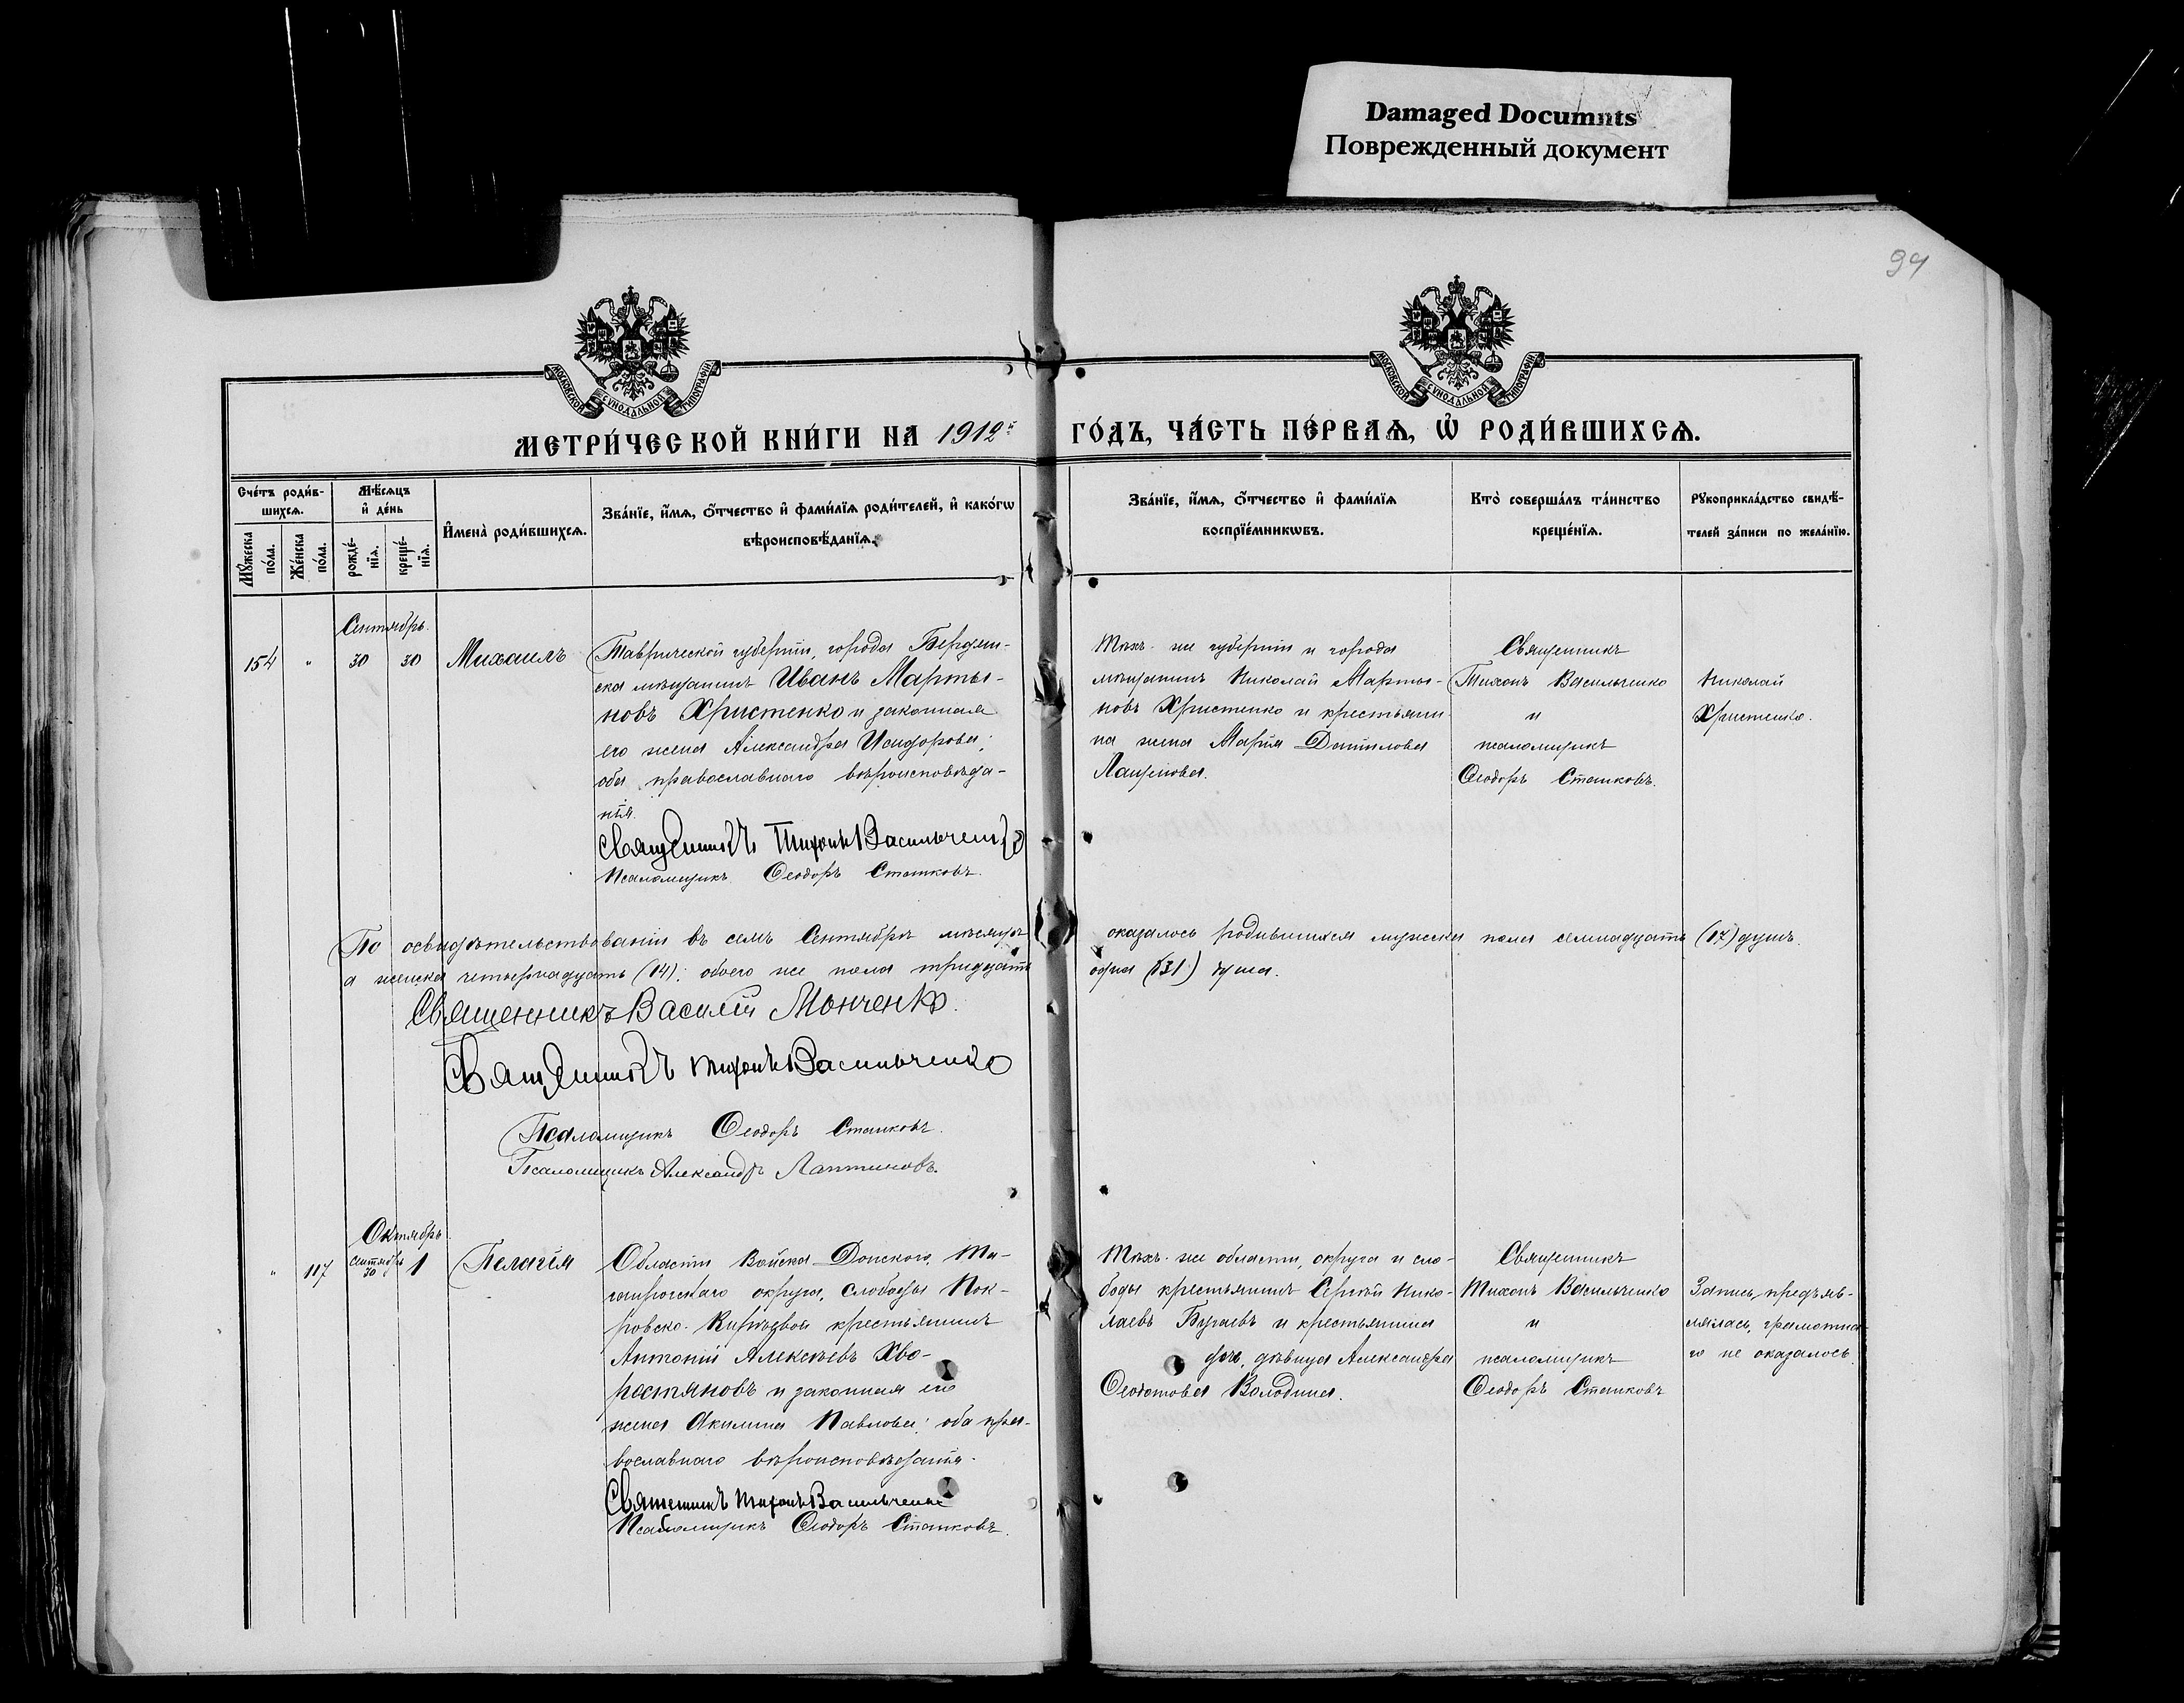 Damaged Documnts
Поврежденный документ
94
МОСКОВСКОЙ СѴНОДАЛЬНОЙ ТИПОГРАФІИ
МОСКОВСКОЙ СѴНОДАЛЬНОЙ ТИПОГРАФІИ
МЕТРИ́ЧЕСКОЙ КНИ́ГИ НА 1912й ГО́ДЪ, ЧА́СТЬ ПЕ́РВАѦ, Ѡ҆ РОДИ́ВШИХСѦ.
Сче́тъ роди́в-
шихсѧ.
Мꙋ́жеска по́ла.
Же́нска по́ла.
Мѣ́сѧцъ
и҆ де́нь
рожде́-
нїѧ.
креще́-
нїѧ.
И҆мена̀ роди́вшихсѧ.
Зва́нїе, и҆́мѧ, ѻ҆́тчество и҆ фами́лїѧ роди́телей, и҆ како́гѡ
вѣроисповѣ́данїѧ.
Зва́нїе, и҆́мѧ, ѻ҆́тчество и҆ фами́лїѧ
воспрїе́мникѡвъ.
Кто̀ соверша́лъ та́инство
креще́нїѧ.
Рꙋкоприкла́дство свидѣ́-
телей за́писи по жела́нїю.
Сентябрь.
154 " 30 30 Михаилъ
Таврической губерніи, города Бердян-
ска мѣщанинъ Иванъ Марты-
новъ Христенко и законная
его жена Александра Исидорова;
оба православнаго вѣроисповѣда-
нія.
Священникъ Тихонъ Васильченко
Псаломщикъ Ѳеодоръ Станковъ.
Тѣхъ же губерніи и города
мѣщанинъ Николай Марты-
новъ Христенко и крестьяни-
на жена Марія Данилова
Лащенова.
Священникъ
Тихонъ Васильченко
и
псаломщикъ
Ѳеодоръ Станковъ.
Николай
Христенко.
По освидѣтельствованіи въ семъ Сентябрѣ мѣсяцѣ оказалось родившихся мужеска пола семнадцать (17) душъ.
а женска четырнадцать (14); обоего же пола тридцать одна (31) душа.
Священникъ Василій Монченко.
Священникъ Тихонъ Васильченко
Псаломщикъ Ѳеодоръ Станковъ.
Псаломщикъ Александръ Лаптиновъ.
Октябрь
" 117 сентябрь 30 1 Пелагія
Области Войска Донского, Та-
ганрогскаго округа, слободы Пок-
ровско-Кирѣевой крестьянинъ
Антоній Алексѣевъ Хво-
ростяновъ и законная его
жена Акилина Павлова; оба пра-
вославнаго вѣроисповѣданія.
Священникъ Тихонъ Васильченко
Псаломщикъ Ѳеодоръ Станковъ.
Тѣхъ же области, округа и сло-
боды крестьянинъ Сергѣй Нико-
лаевъ Бугаевъ и крестьянина
дочь, дѣвица Александра
Ѳеодотова Володина.
Священникъ
Тихонъ Васильченко
и
псаломщикъ
Ѳеодоръ Станковъ
Запись предъяв-
лялась, грамотна-
го не оказалось.